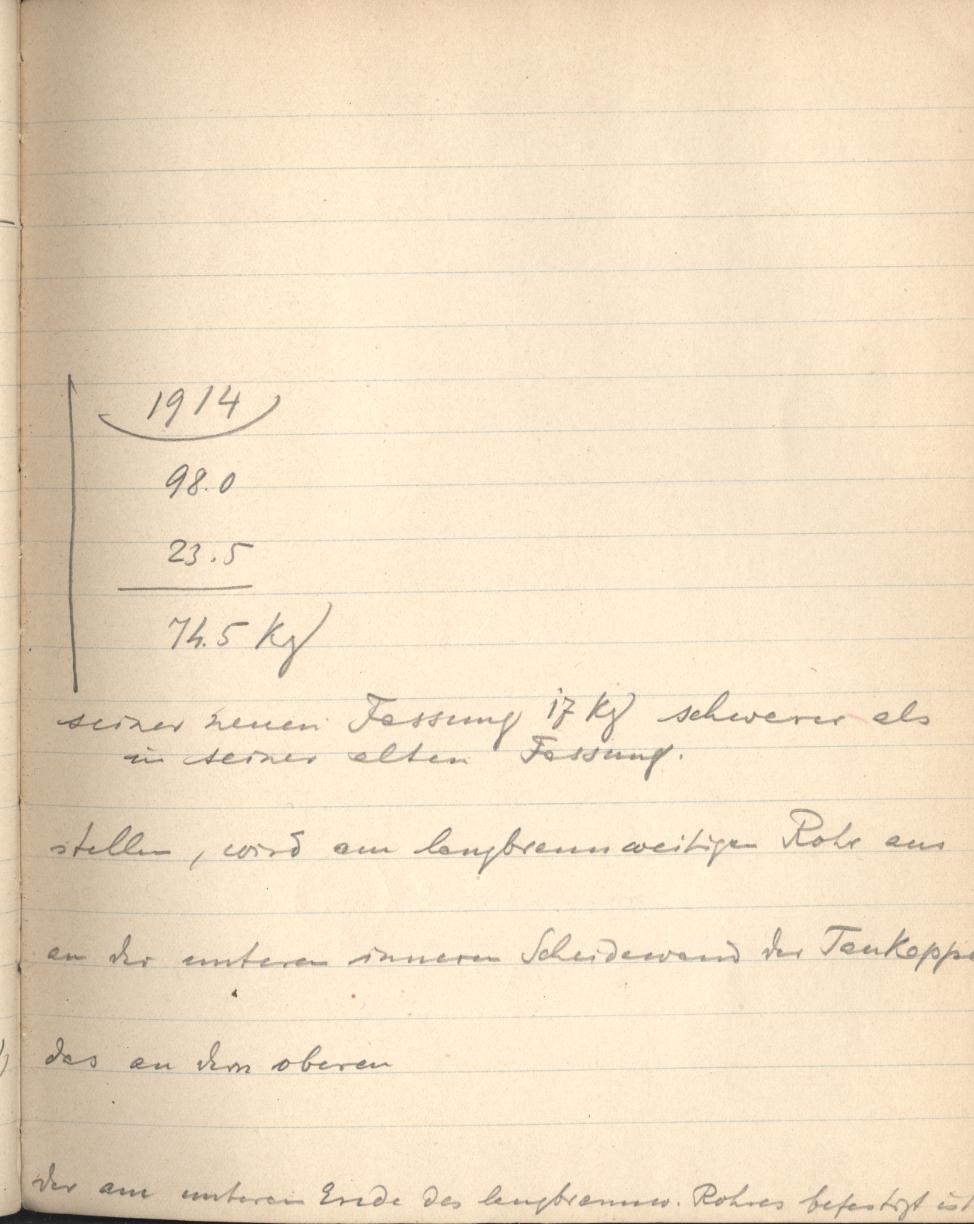 1914
98.0
23.5
74.5 Kg
seiner neuen Fassung 17 Kg schwerer als
in seiner alten Fassung.
stellen, wird am langbrennweitigen Rohr aus
an der unteren inneren Scheidewand der Taukappe
das an dem oberen
der am unteren Ende des langbrennw. Rohres befestigt ist